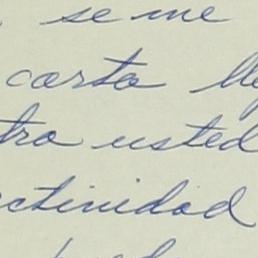 se me
carta lle
tra usted
ctividad